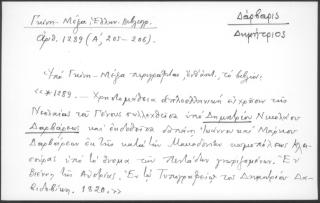 Γκίνη - Μέξα Ελλην. Βιβλιογρ.
Δάρβαρις
Δημήτριος
Ἀριθ. 1289 (Α', 205 - 206).
Ὑπὸ Γκίνη - Μέξα περιγράφεται, τὸ βιβλίον:
«*1289. — Χρηστομάθεια ἁπλοελληνικὴ εἰς χρῆσιν τῆς
Νεολαίας τοῦ Γένους συλλεχθεῖσα ὑπὸ Δημητρίου Νικολάου
Δαρβάρεως καὶ ἐκδοθεῖσα δαπάνῃ Ἰωάννου καὶ Μάρκου
Δαρβάρεων ἐκ τῆς κατὰ τὴν Μακεδονίαν κωμοπόλεως Κλει-
σούρας ὑπὸ τὸ ὄνομα τῶν Πενταδων γνωριζομένων. Ἐν
Βιέννῃ τῆς Αὐστρίας. Ἐκ τῆς Τυπογραφίας τοῦ Δημητρίου Δα-
βιδοβίκη. 1820.»